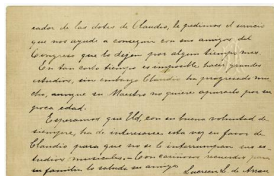 cador de las dotes de Claudio, le pedimos el servicio
que nos ayude a conseguir con sus amigos del
Congreso que lo dejen por algun tiempo mas.
En tan corto tiempo es imposible hacer grandes
estudios, sin embargo Claudio ha progresado mu
cho, aunque su Maestro no quiere apurarlo por su
poca edad.
Esperamos que Ud, con su buena voluntad de
siempre, ha de interesarse esta vez en favor de
Claudio para que no se le interrumpan sus es-
tudios musicales. Con cariñosos recuerdos para
su familia lo saluda su amiga
Lucrecia L. de Arrau